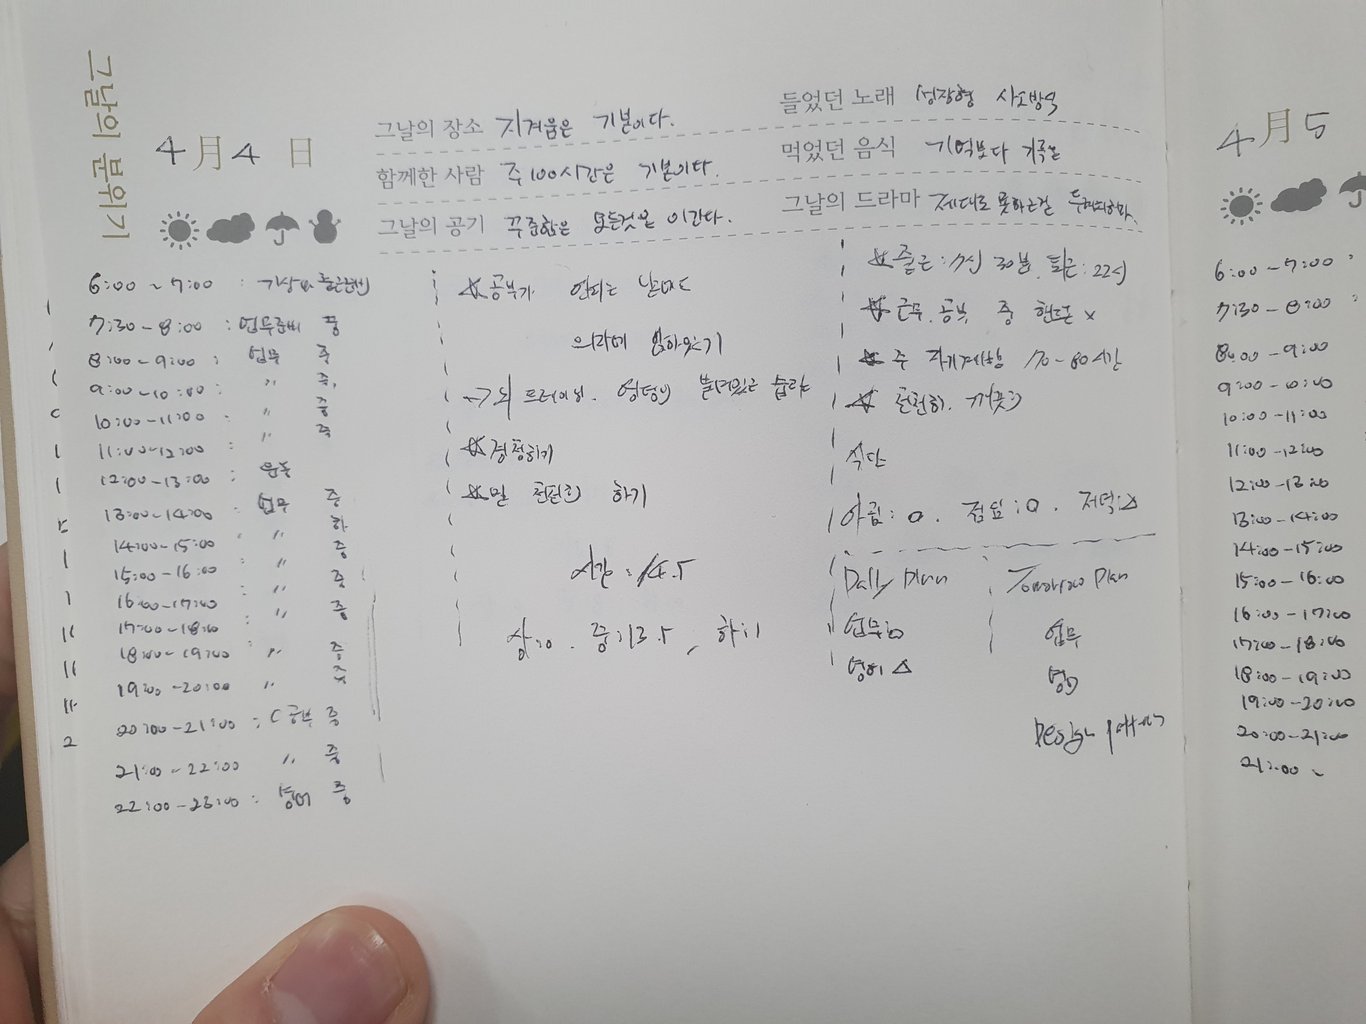 그날의 분위기
4月4日
그날의 장소 지겨움은 기본이다.
함께한 사람 주100시간은 기본이다.
그날의 공기 꾸준함은 모든것을 이긴다.
들었던 노래 성장형 사고방식
먹었던 음식 기억보다 기록을
그날의 드라마 제대로 못하는걸
6:00 ~ 7:00 : 기상 및 출근준비
7:30-8:00 : 업무준비 중
8:00-9:00 : 업무 중
9:00-10:00 : " 중.
10:00-11:00 " 중
11:00-12:00 : " 중
12:00-13:00 : 운동
13:00-14:00 : 업무 중
14:00-15:00 " 하
15:00-16:00 " 중
16:00-17:00 " 중
17:00-18:00 " 중
18:00-19:00 " 중
19:00-20:00 " 중
20:00-21:00 : C 공부 중
21:00-22:00 " 중
22:00-23:00 : 영어 중
☆공부가 안되는 날에도
의자에 앉아있기
→뇌 트레이닝. 엉덩이 붙여있는 습관
☆경청하기
☆말 천천히 하기
시간 : 14.5
상:0. 중:13.5, 하:1
☆출근:7시 30분. 퇴근:22시
☆근무. 공부 중 핸드폰 x
☆주 자기계발 70-80시간
☆천천히. 깨끗이
식단
아침:o. 점심:o. 저녁:△
Daily Plan
업무:o
영어 △
Tomorrow Plan
업무
영어
Design pattern
4月5
6:00-7:00
7:30-8:00
8:00-9:00
9:00-10:00
10:00-11:00
11:00-12:00
12:00-13:00
13:00-14:00
14:00-15:00
15:00-16:00
16:00-17:00
17:00-18:00
18:00-19:00
19:00-20:00
20:00-21:00
21:00~